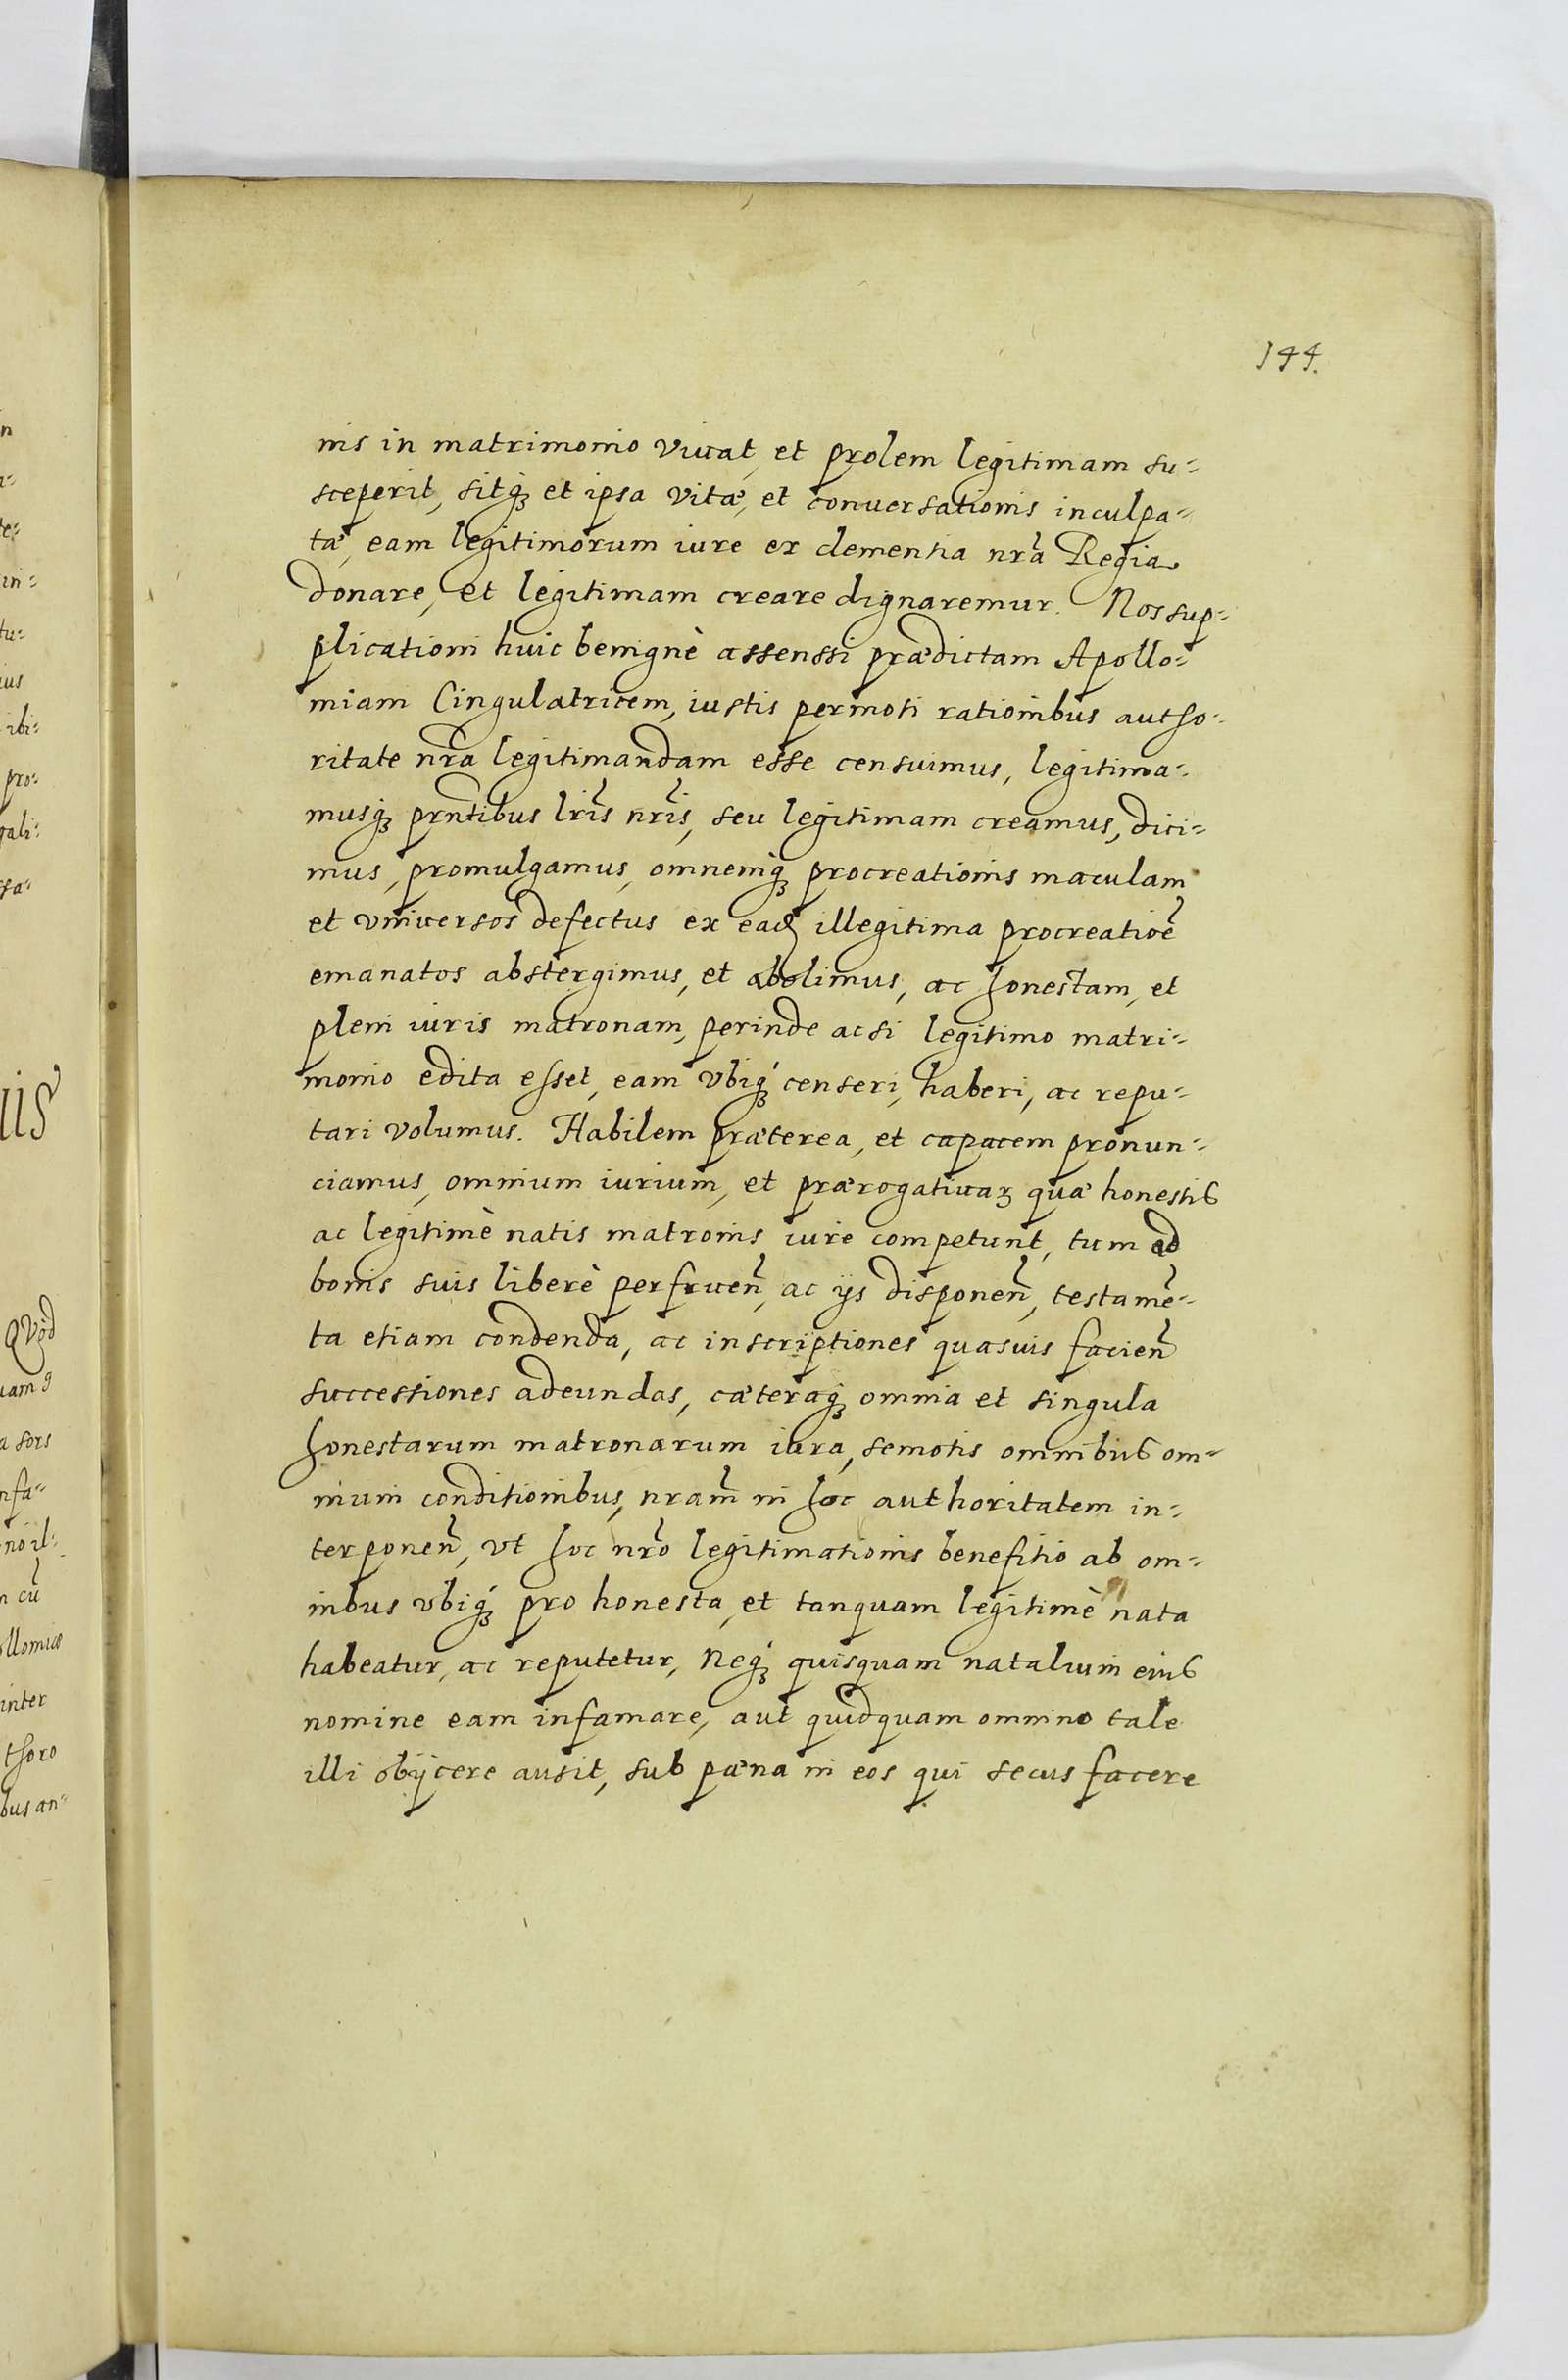 144.
nis in matrimonio viuat, et prolem legitimam su-
sceperit, sitq₃ et ipsa vitæ, et conuersationis inculpa-
tæ, eam legitimorum iure ex clementia nrã Regia
donare, et legitimam creare dignaremur. Nos sup-
plicationi huic benignè assenssi prædictam Apollo-
niam Cingulatricem, iustis permoti rationibus autho-
ritate nrã legitimandam esse censuimus, legitima-
musq₃ prñtibus lrĩs nrĩs, seu legitimam creamus, dici-
mus, promulgamus, omnemq₃ procreationis maculam
et vniuersos defectus ex eadẽ illegitima procreatiõe
emanatos abstergimus, et abolimus, ac honestam, et
pleni iuris matronam, perinde ac si legitimo matri-
monio edita esset, eam vbiq₃ censeri, haberi, ac repu-
tari volumus. Habilem præterea, et capacem pronun-
ciamus, omnium iurium, et prærogatiuaꝝ quæ honestis
ac legitimè natis matronis iure competunt, tum ad
bonis suis liberè perfruen̄, ac ijs disponen̄, testamẽ-
ta etiam condenda, ac inscriptiones quasuis facien̄
successiones adeundas, cæteraq₃ omnia et singula
honestarum matronarum iura, semotis omnibus om-
nium conditionibus, nram̃ in hoc authoritatem in-
terponen̄, vt hoc nrõ legitimationis benefitio ab om-
nibus vbiq₃ pro honesta, et tanquam legitimè nata
habeatur, ac reputetur, Neq₃ quisquam natalium eius
nomine eam infamare, aut quidquam omnino tale
illi obijcere ausit, sub pæna in eos qui secus facere